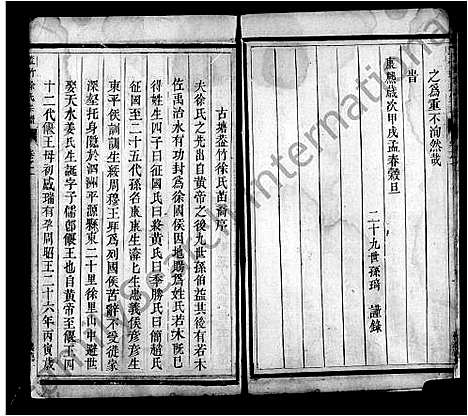 之爲重不洵然哉
旹
康熙歲次甲戌孟春穀旦
二十九世孫琦 謹錄
古塘盤竹徐氏苗裔序
夫徐氏之先出自黃帝之後九世孫伯益其後有若木
佐禹治水有功封爲徐國侯因地賜爲姓氏若木旣已
得姓生四子曰征國氏曰終黃氏曰季勝氏曰簡趙氏
征國至二十五代孫名康康生濬生忠義侯彥彥生
東平侯訓訓生綖周穆王拜爲列國侯苦辭不受徙家
深壑托身隱於泗洲平源縣東二十里徐里山中避世
娶天水姜氏生誕字子孺卽偃王也自黃帝至偃王四
十二代偃王母初感瑞有孕周昭王二十六年丙寅歲